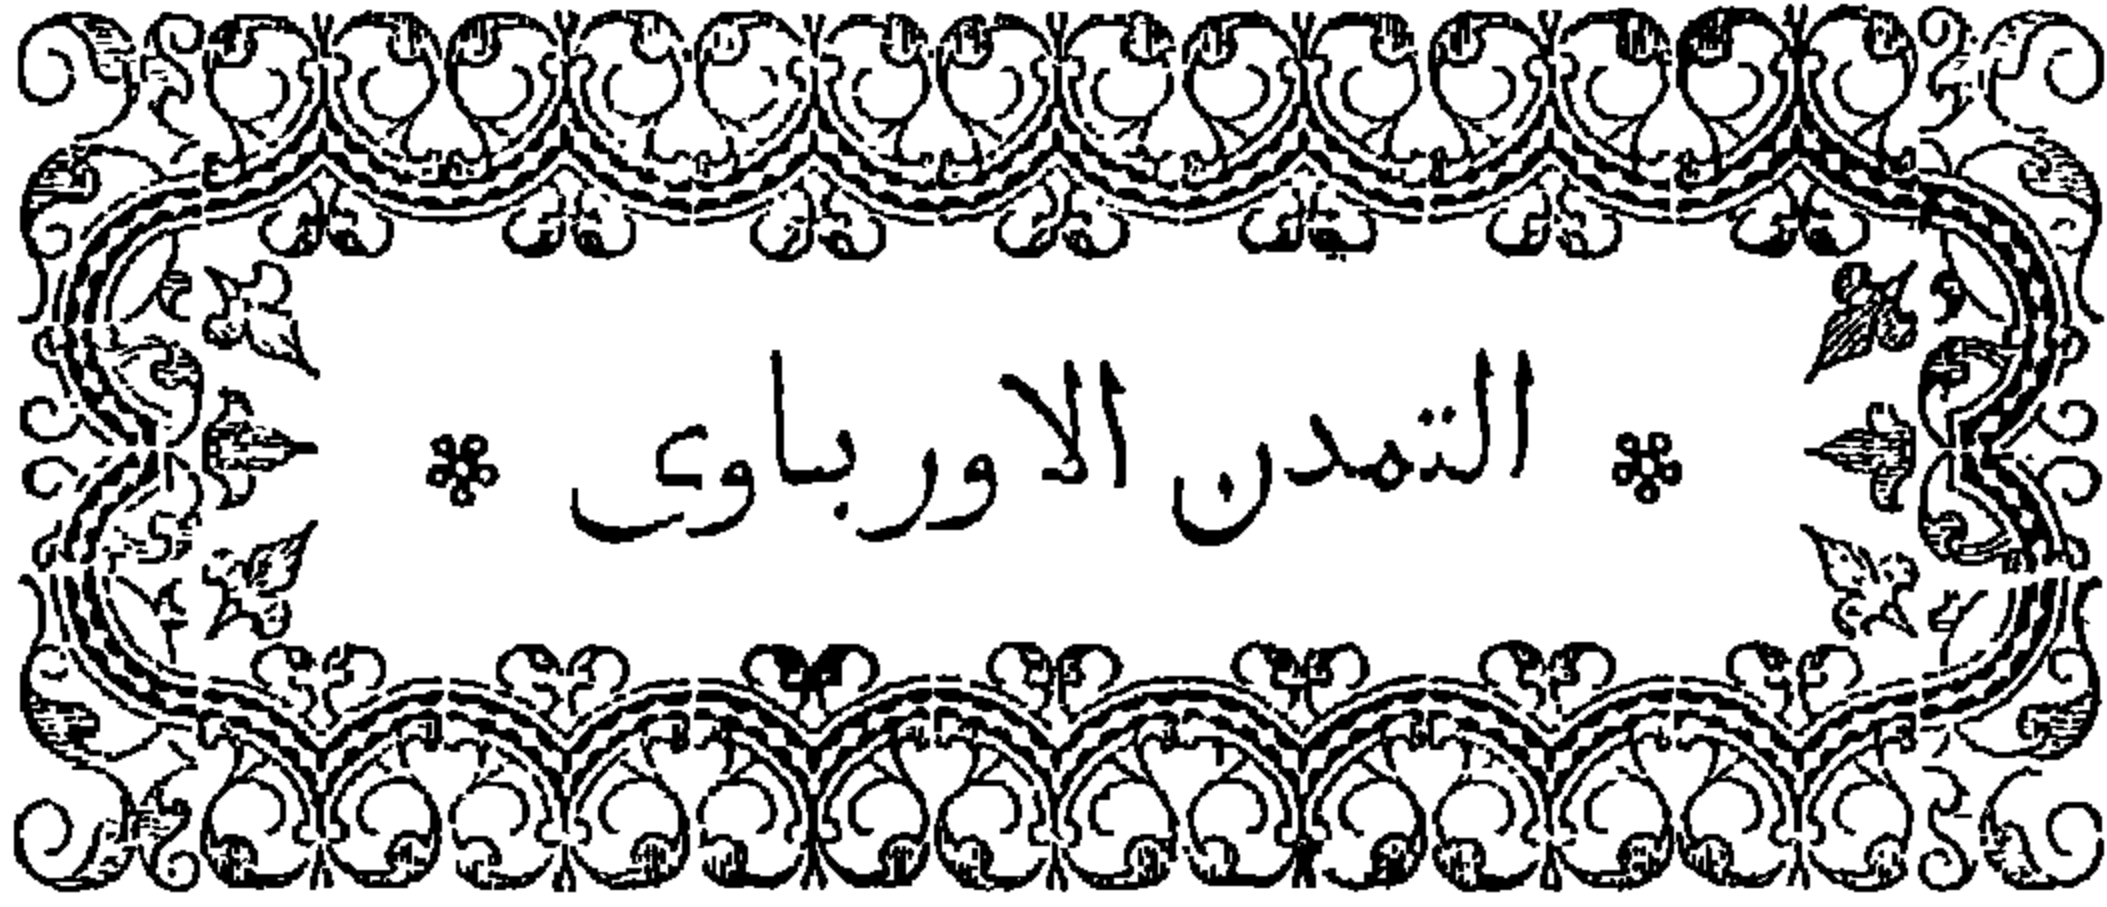 * التمدن الاورباوى *